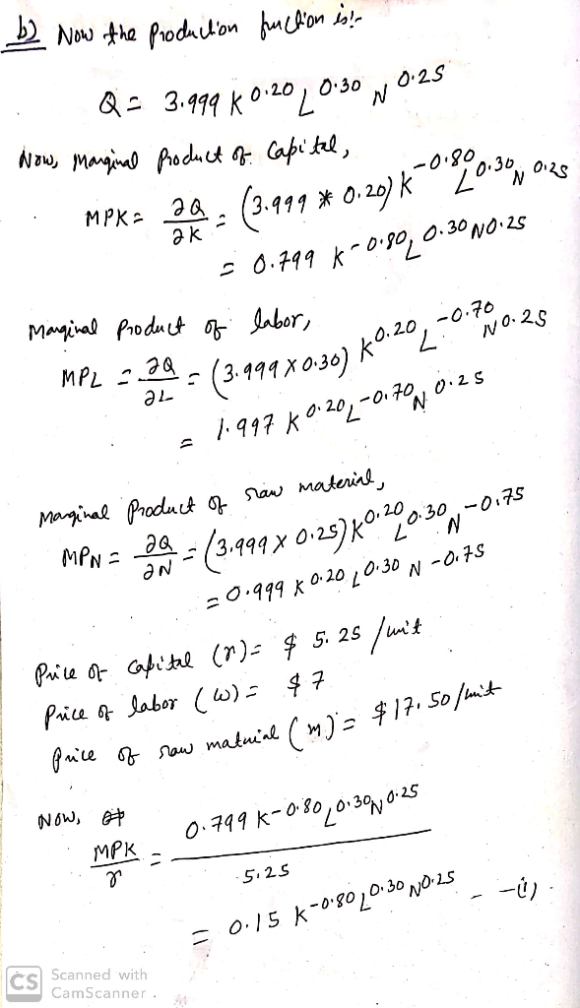 b) Now the production function is:-
Q = 3.999 K^0.20 L^0.30 N^0.25
Now, Marginal Product of Capital,
MPK = ∂Q/∂K = (3.999 * 0.20) K^-0.80 L^0.30 N^0.25
= 0.799 K^-0.80 L^0.30 N^0.25
Marginal Product of labor,
MPL = ∂Q/∂L = (3.999 x 0.30) K^0.20 L^-0.70 N^0.25
= 1.997 K^0.20 L^-0.70 N^0.25
Marginal Product of raw material,
MPN = ∂Q/∂N = (3.999 x 0.25) K^0.20 L^0.30 N^-0.75
= 0.999 K^0.20 L^0.30 N^-0.75
Price of Capital (r) = $ 5.25 /unit
Price of labor (w) = $7
Price of raw material (m) = $17.50/unit
Now,
MPK/r = 0.799 K^-0.80 L^0.30 N^0.25 / 5.25
= 0.15 K^-0.80 L^0.30 N^0.25 - -(i)
CS Scanned with
CamScanner